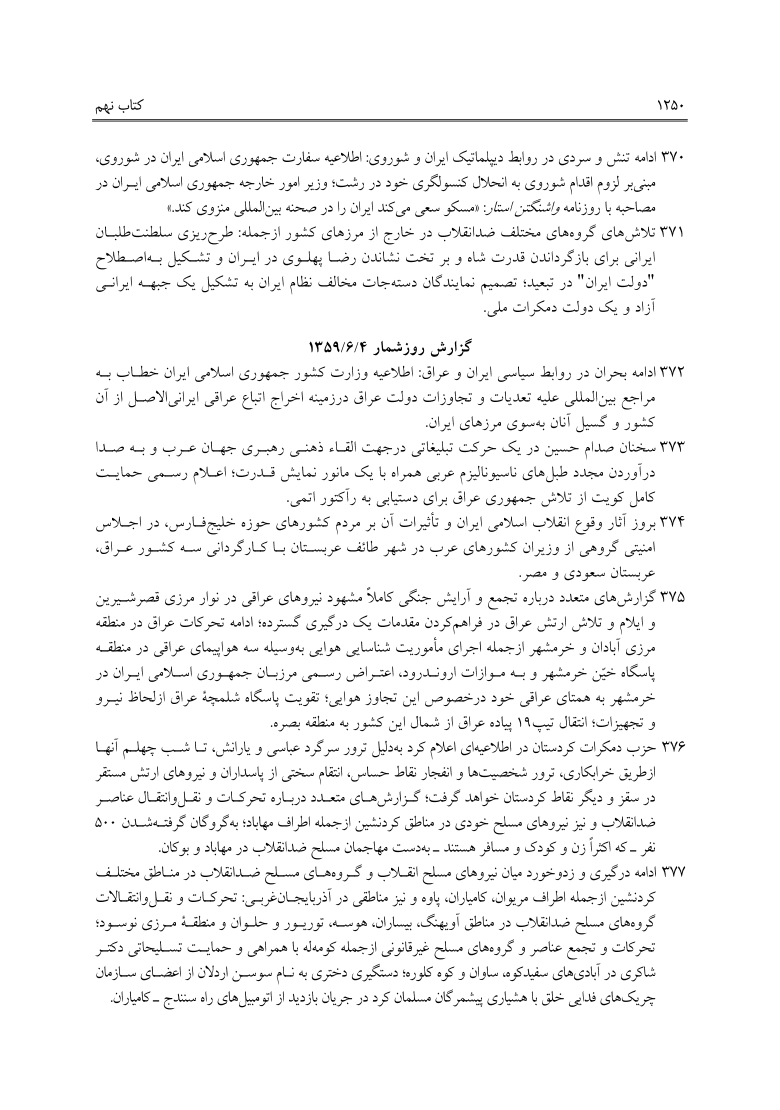 ۱۲۵۰ کتاب نهم
۳۷۰ ادامه تنش و سردی در روابط دیپلماتیک ایران و شوروی: اطلاعیه سفارت جمهوری اسلامی ایران در شوروی،
مبنی‌بر لزوم اقدام شوروی به انحلال کنسولگری خود در رشت؛ وزیر امور خارجه جمهوری اسلامی ایـران در
مصاحبه با روزنامه واشنگتن‌استار: «مسکو سعی می‌کند ایران را در صحنه بین‌المللی منزوی کند.»
۳۷۱ تلاش‌های گروه‌های مختلف ضدانقلاب در خارج از مرزهای کشور ازجمله: طرح‌ریزی سلطنت‌طلبـان
ایرانی برای بازگرداندن قدرت شاه و بر تخت نشاندن رضـا پهلـوی در ایـران و تشـکیل بـه‌اصـطلاح
"دولت ایران" در تبعید؛ تصمیم نمایندگان دسته‌جات مخالف نظام ایران به تشکیل یک جبهـه ایرانـی
آزاد و یک دولت دمکرات ملی.
گزارش روزشمار ۱۳۵۹/۶/۴
۳۷۲ ادامه بحران در روابط سیاسی ایران و عراق: اطلاعیه وزارت کشور جمهوری اسلامی ایران خطـاب بـه
مراجع بین‌المللی علیه تعدیات و تجاوزات دولت عراق درزمینه اخراج اتباع عراقی ایرانی‌الاصـل از آن
کشور و گسیل آنان به‌سوی مرزهای ایران.
۳۷۳ سخنان صدام حسین در یک حرکت تبلیغاتی درجهت القـاء ذهنـی رهبـری جهـان عـرب و بـه صـدا
درآوردن مجدد طبل‌های ناسیونالیزم عربی همراه با یک مانور نمایش قـدرت؛ اعـلام رسـمی حمایـت
کامل کویت از تلاش جمهوری عراق برای دستیابی به رآکتور اتمی.
۳۷۴ بروز آثار وقوع انقلاب اسلامی ایران و تأثیرات آن بر مردم کشورهای حوزه خلیج‌فـارس، در اجـلاس
امنیتی گروهی از وزیران کشورهای عرب در شهر طائف عربسـتان بـا کـارگردانی سـه کشـور عـراق،
عربستان سعودی و مصر.
۳۷۵ گزارش‌های متعدد درباره تجمع و آرایش جنگی کاملاً مشهود نیروهای عراقی در نوار مرزی قصرشـیرین
و ایلام و تلاش ارتش عراق در فراهم‌کردن مقدمات یک درگیری گسترده؛ ادامه تحرکات عراق در منطقه
مرزی آبادان و خرمشهر ازجمله اجرای مأموریت شناسایی هوایی به‌وسیله سه هواپیمای عراقی در منطقـه
پاسگاه خیّن خرمشهر و بـه مـوازات ارونـدرود، اعتـراض رسـمی مرزبـان جمهـوری اسـلامی ایـران در
خرمشهر به همتای عراقی خود درخصوص این تجاوز هوایی؛ تقویت پاسگاه شلمچهٔ عراق ازلحاظ نیـرو
و تجهیزات؛ انتقال تیپ۱۹ پیاده عراق از شمال این کشور به منطقه بصره.
۳۷۶ حزب دمکرات کردستان در اطلاعیه‌ای اعلام کرد به‌دلیل ترور سرگرد عباسی و یارانش، تـا شـب چهلـم آنهـا
ازطریق خرابکاری، ترور شخصیت‌ها و انفجار نقاط حساس، انتقام سختی از پاسداران و نیروهای ارتش مستقر
در سقز و دیگر نقاط کردستان خواهد گرفت؛ گـزارش‌هـای متعـدد دربـاره تحرکـات و نقـل‌وانتقـال عناصـر
ضدانقلاب و نیز نیروهای مسلح خودی در مناطق کردنشین ازجمله اطراف مهاباد؛ به‌گروگان گرفتـه‌شـدن ۵۰۰
نفر ـ که اکثراً زن و کودک و مسافر هستند ـ به‌دست مهاجمان مسلح ضدانقلاب در مهاباد و بوکان.
۳۷۷ ادامه درگیری و زدوخورد میان نیروهای مسلح انقـلاب و گـروه‌هـای مسـلح ضـدانقلاب در منـاطق مختلـف
کردنشین ازجمله اطراف مریوان، کامیاران، پاوه و نیز مناطقی در آذربایجـان‌غربـی: تحرکـات و نقـل‌وانتقـالات
گروه‌های مسلح ضدانقلاب در مناطق آویهنگ، بیساران، هوسـه، توریـور و حلـوان و منطقـهٔ مـرزی نوسـود؛
تحرکات و تجمع عناصر و گروه‌های مسلح غیرقانونی ازجمله کومه‌له با همراهی و حمایـت تسـلیحاتی دکتـر
شاکری در آبادی‌های سفیدکوه، ساوان و کوه کلوره؛ دستگیری دختری به نـام سوسـن اردلان از اعضـای سـازمان
چریک‌های فدایی خلق با هشیاری پیشمرگان مسلمان کرد در جریان بازدید از اتومبیل‌های راه سنندج ـ کامیاران.